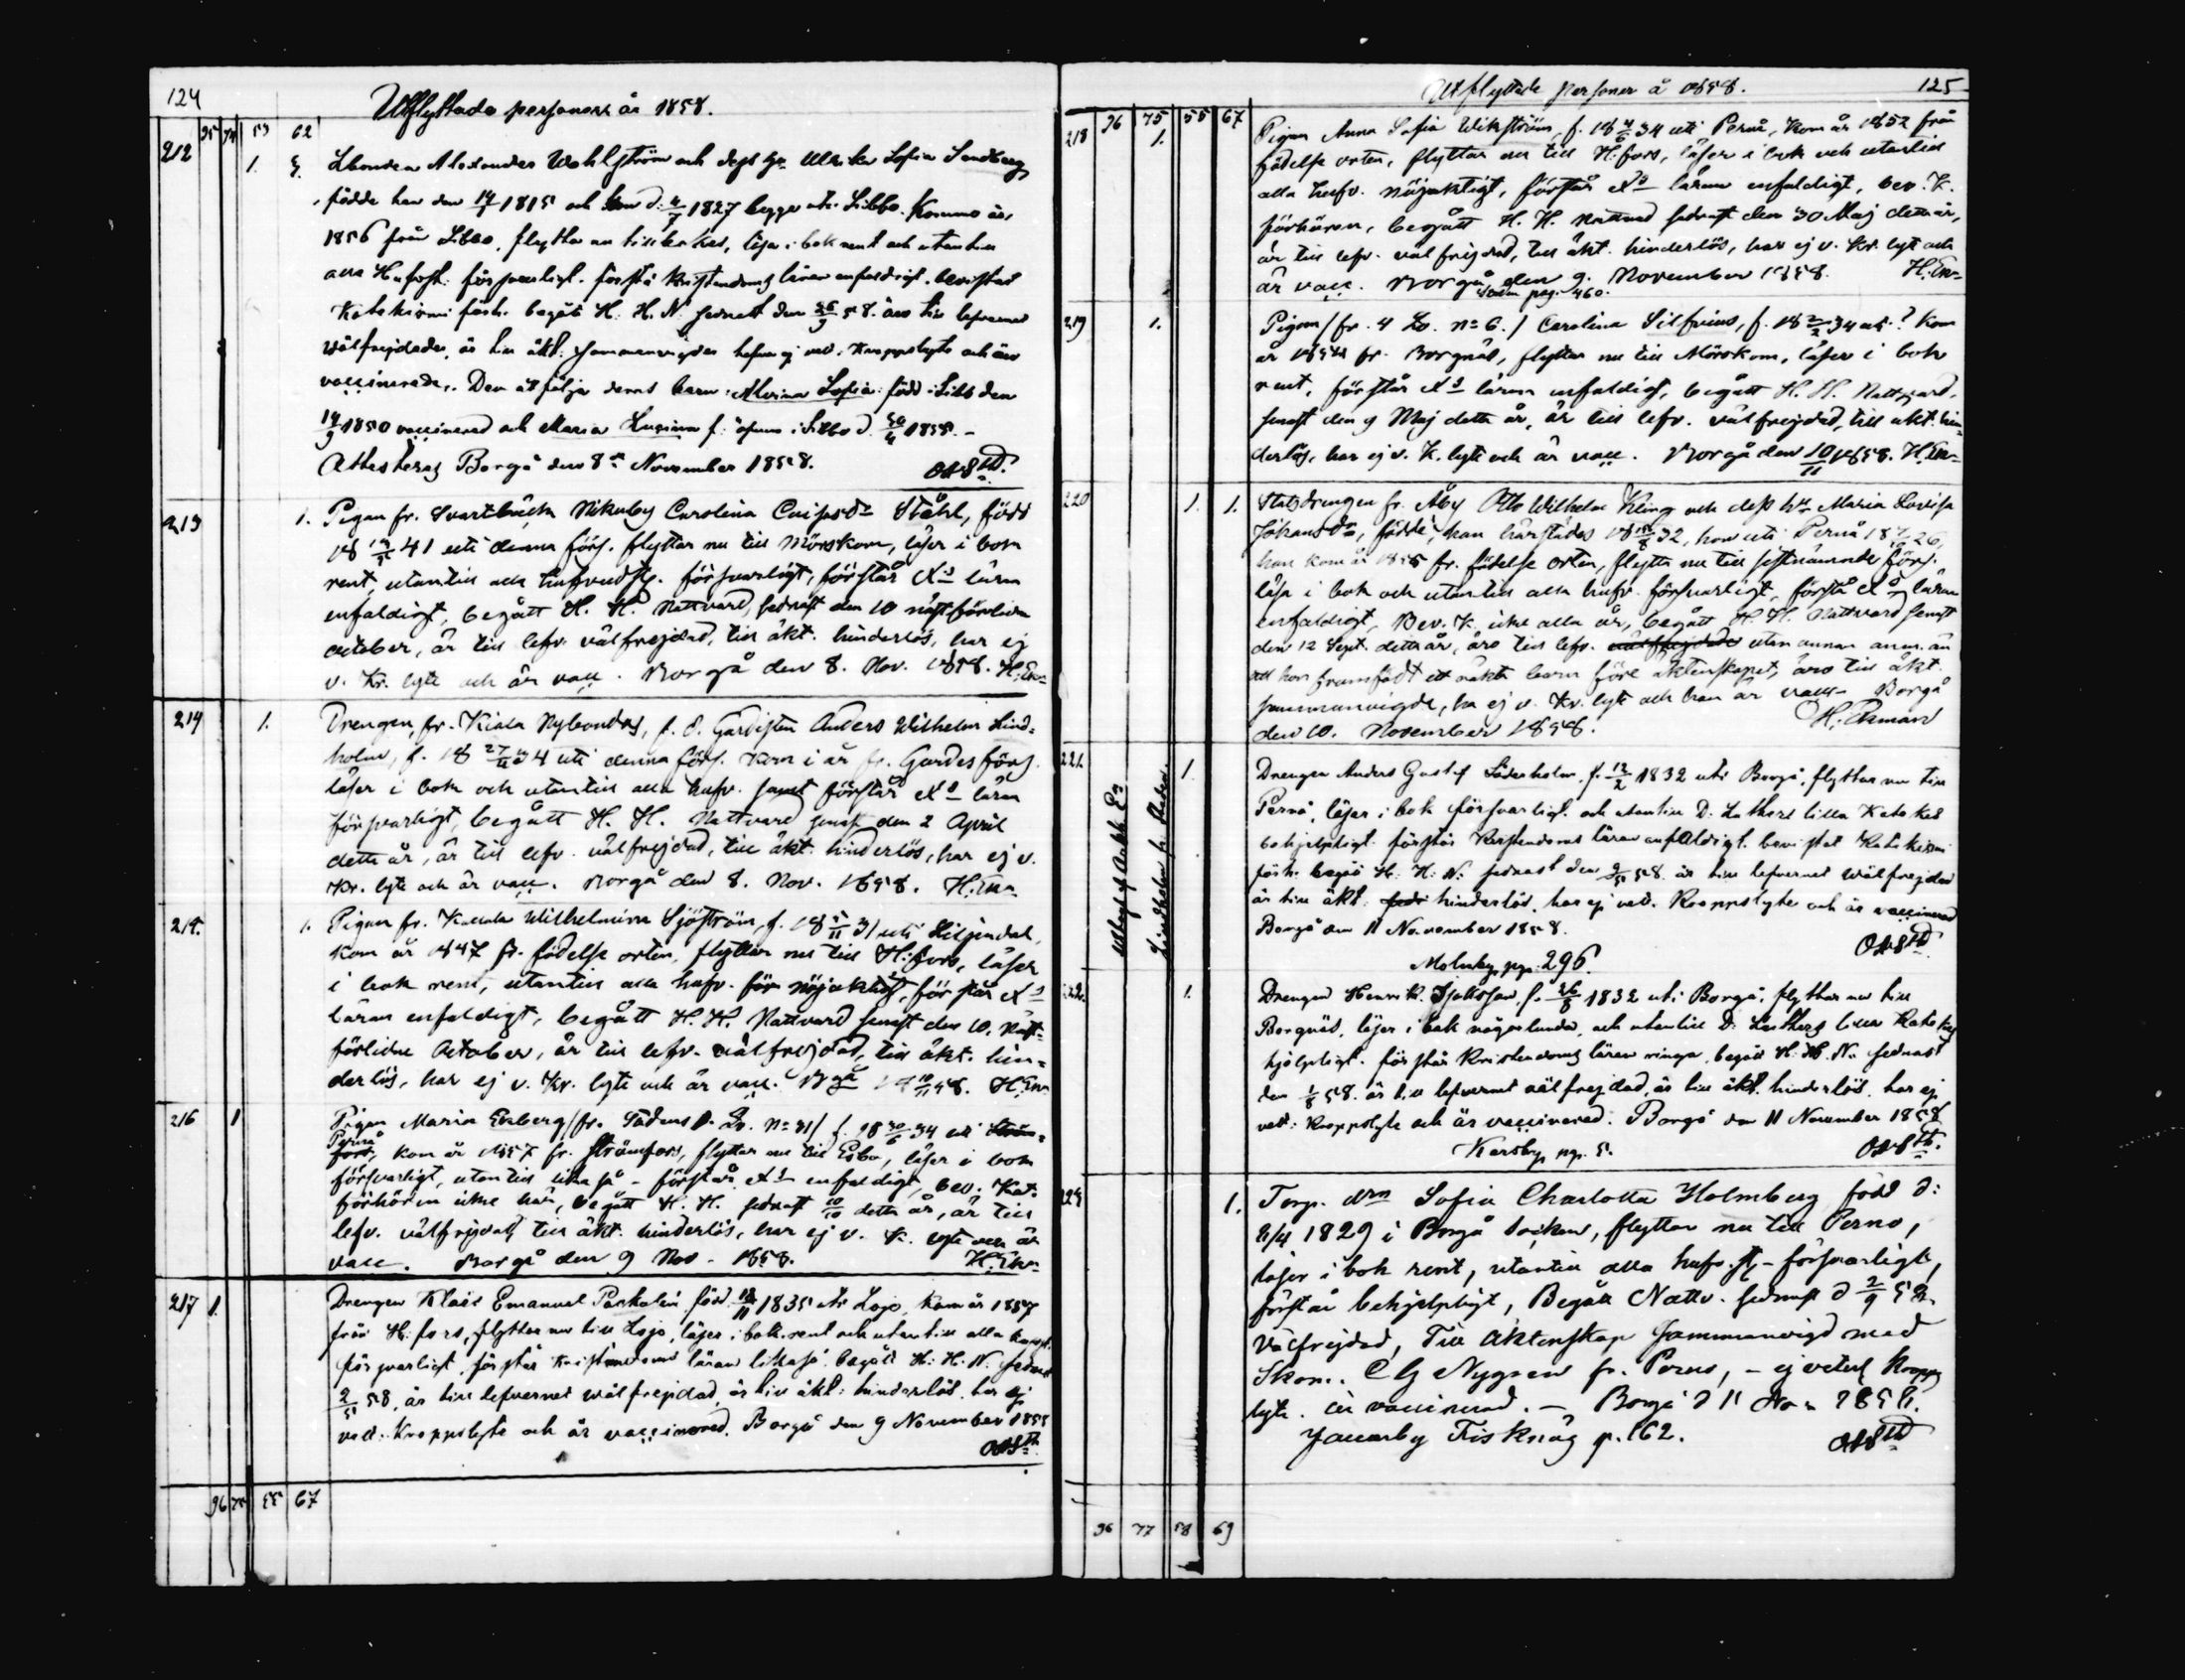 124
Utflyttade personer år 1858.
95 74 53 62
212 1. 3. Lbonden Alexander Wahlström och dess hu Ulrika Sofia Sandberg
födde han den 14/ 1815 och hon d. 4/7 1827 begge uti Sibbo. Kommo år
1856 från Sibbo, flytta nu tillbakas, läsa i bok rent och utantill
alla Hufvst. försvarligt. förstå kristendoms läran enfaldigt. bevistat
Katekismi förh. begått H. H. N. sednast den 26/9 58. äro till lefvernet
wälfrejdade, är till äkt. sammanvigde hafva ej vet. Kroppslyte och äro
vaccinerade. Den åtfölja deras barn: Alvina Sofia född i Sibbo den
14/9 1850 vaccinerad och Maria Lusina f. äfven i Sibbo d. 30/4 1855. -
Attesteras Borgå den 8de November 1858.
213 1. Pigan fr. Svartbäck Nikuby Carolina Cajsadr Ståhl, född
18 41 uti denna förs. flyttar nu till Mörskom, läser i bok
rent, utantill alla hufvudst. försvarligt, förstår Xs läran
enfaldigt, begått H. H. Nattvard, sednast den 10 nästförlidne
october, är till lefv. välfrejdad, till äkt. hinderlös, har ej
v. Kr. lyte och är vacc. Borgå den 8. Nov. 1858. H. En
214 1. Drengen, fr. Kiala Nybondas, f. d. Gardisten Anders Wilhelm Lind-
holm, f. 18 27/11 34 uti denna förs. Kom i år fr. Gardes förs.
läser i bok och utantill alla hufv. samt förstår Xs läran
försvarligt, begått H. H. Nattvard senast den 2 April
detta år, är till lefv. välfrejdad, till äkt. hinderlös, har ej v.
Kr. lyte och är vacc. Borgå den 8. Nov. 1858. H. En
215. 1. Pigan fr. Wilhelmina Sjöström, f. 18 5/11 31 uti Liljendal,
kom år 1847 fr. födelse orten, flyttar nu till H:fors, läser
i bok rent, utantill alla hufv. för nöjaktigt, förstår Xs
läran enfaldigt, begått H. H. Nattvard senast den 10. näst-
förlidne October, är till lefv. välfrejdad, till äkt. hin-
derlös, har ej v. Kr. lyte och är vacc. Bgå 18 10/11 58. H. En
216 1 Pigan Maria Enberg/fr. Lo. n: 31/ f. 18 30/6 34 uti Ström-
Pernå
fors, kom år 1857 fr. Strömfors, flyttar nu till Esbo, läser i bok
försvarligt, utantill lika så - förstår Xs enfaldigt, bev. Kat.
förhören icke här, begått H. H. sednast 10/10 detta år, är till
lefv. välfrejdad, till äkt. hinderlös, har ej v. K. lyte och är
vacc. Borgå den 9 Nov. 1858. H. En
217 1. Drengen Klaes Emanuel Packalén född 18/11 1835 uti Lojo, kom år 1857
från H:fors, flyttar nu till Lojo, läser i bok rent och utantill alla hufvst.
försvarligt, förstår Kristendoms läran likaså. begått H. H. N. sednast
2/5 58, är till lefvernet wälfrejdad, är till äkt: hinderlös, har ej
vet. Kroppslyte och är vaccinerad. Borgå den 9 November 1858
96 75 55 67
Utflyttade personer å 1858. 125
96 75 55 67
218 1. Pigan Anna Sofia Wikström, f. 18 34 uti Pernå, kom år 1852 från
födelse orten, flyttar nu till H:fors, läser i bok och utantill
alla hufv. nöjaktigt, förstår Xs läran enfaldigt, bev. K.
förhören, begått H. H. nattvard sednast den 30 Maj detta år,
är till lefv. välfrejdad, till äkt. hinderlös, har ej v. Kr. lyte och
är vacc. Borgå den 9. November 1858. H. En
pag. 460.
219 1. Pigan/fr. 4 Lo. n: 6./ Carolina Silfvius, f. 18 2/2 34 uti ? kom
år 1854 fr. Borgnäs, flyttar nu till Mörskom, läser i bok
rent, förstår Xs läran enfaldigt, begått H. H. Nattvard.
senast den 9 Maj detta år, är till lefv. välfrejdad, till äkt. hin-
derlös, har ej v. K. lyte och är vacc. Borgå den 10/11 1858. H. En
220 1. 1. Statdrengen fr. Åby Otto Wilhelm Kling och dess hu Maria Lovisa
Johansdr, födde, han härstädes 18 32, hon uti Pernå 18 26,
hon kom år 1855 fr. födelse orten, flytta nu till sistnämnde förs.
läsa i bok och utantill alla hufv. försvarligt, förstå Xs läran
enfaldigt, Bev. K. icke alla år, begått H. H. Nattvard senast
den 12 Sept. detta år, äro till lefv. välfrejdade utan annan anm. än
att hon framfödt ett oäkta barn före äktenskapet, äro till äkt.
sammanvigde, ha ej v. Kr. lyte och han är vacc. Borgå
den 10. November 1858. H. Ekman
221. 1. Drengen Anders Gustaf Söderholm, f. 13/2 1832 uti Borgå, flyttar nu till
Pernå, läser i bok försvarligt och utantill D. Luthers lilla Kateches
behjelpligt. förstår Kristendoms läran enfaldigt. bevistat Katekismi
förh. begått H. H. N. sednast den 58 är till lefvernet wälfrejdad
är till äkt: hinderlös, har ej vet. Kroppslyte och är vaccinerad
Borgå den 11 November 1858.
Molnby pag: 296.
222. 1. Drengen Henrik, f. 26/8 1832 uti Borgå, flyttar nu till
Borgnäs, läser i bok någorlunda, och utantill D: Luthers lilla Kateches
hjelpligt. förstår Kristendoms läran ringa, begått H. H. N. sednast
den 1/8 58. är till lefvernet välfrejdad, är till äkt. hinderlös, har ej
vet: Kroppslyte och är vaccinerad. Borgå den 11 November 1858
Karsby pag. 5.
1. Torp. drn Sofia Charlotta Holmberg född d:
2/4 1829 i Borgå socken, flyttar nu till Perno,
läser i bok rent, utantill alla hufv.st - försvarligt,
förstår behjelpligt, Begått Nattv. sednast d 2/9 58.
Välfrejdad, Till äktenskap sammanvigd med
Skom. C G Nygren fr. Perno, - ej veterl. kropps
lyte. är vaccinerad. - Borgå d 11 Nov 1858.
p. 162.
96 77 58 69